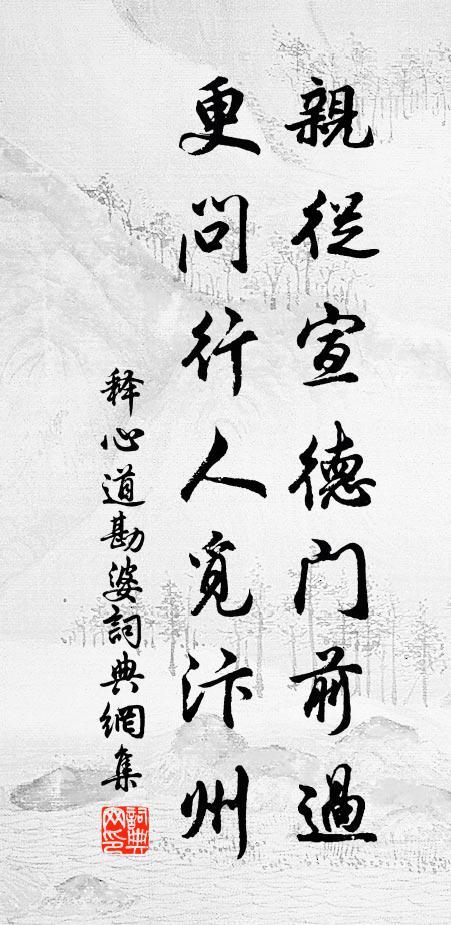 親從宣德门前過
更问行人覓汴州
释心道勘婆詞典網集
詞典网印